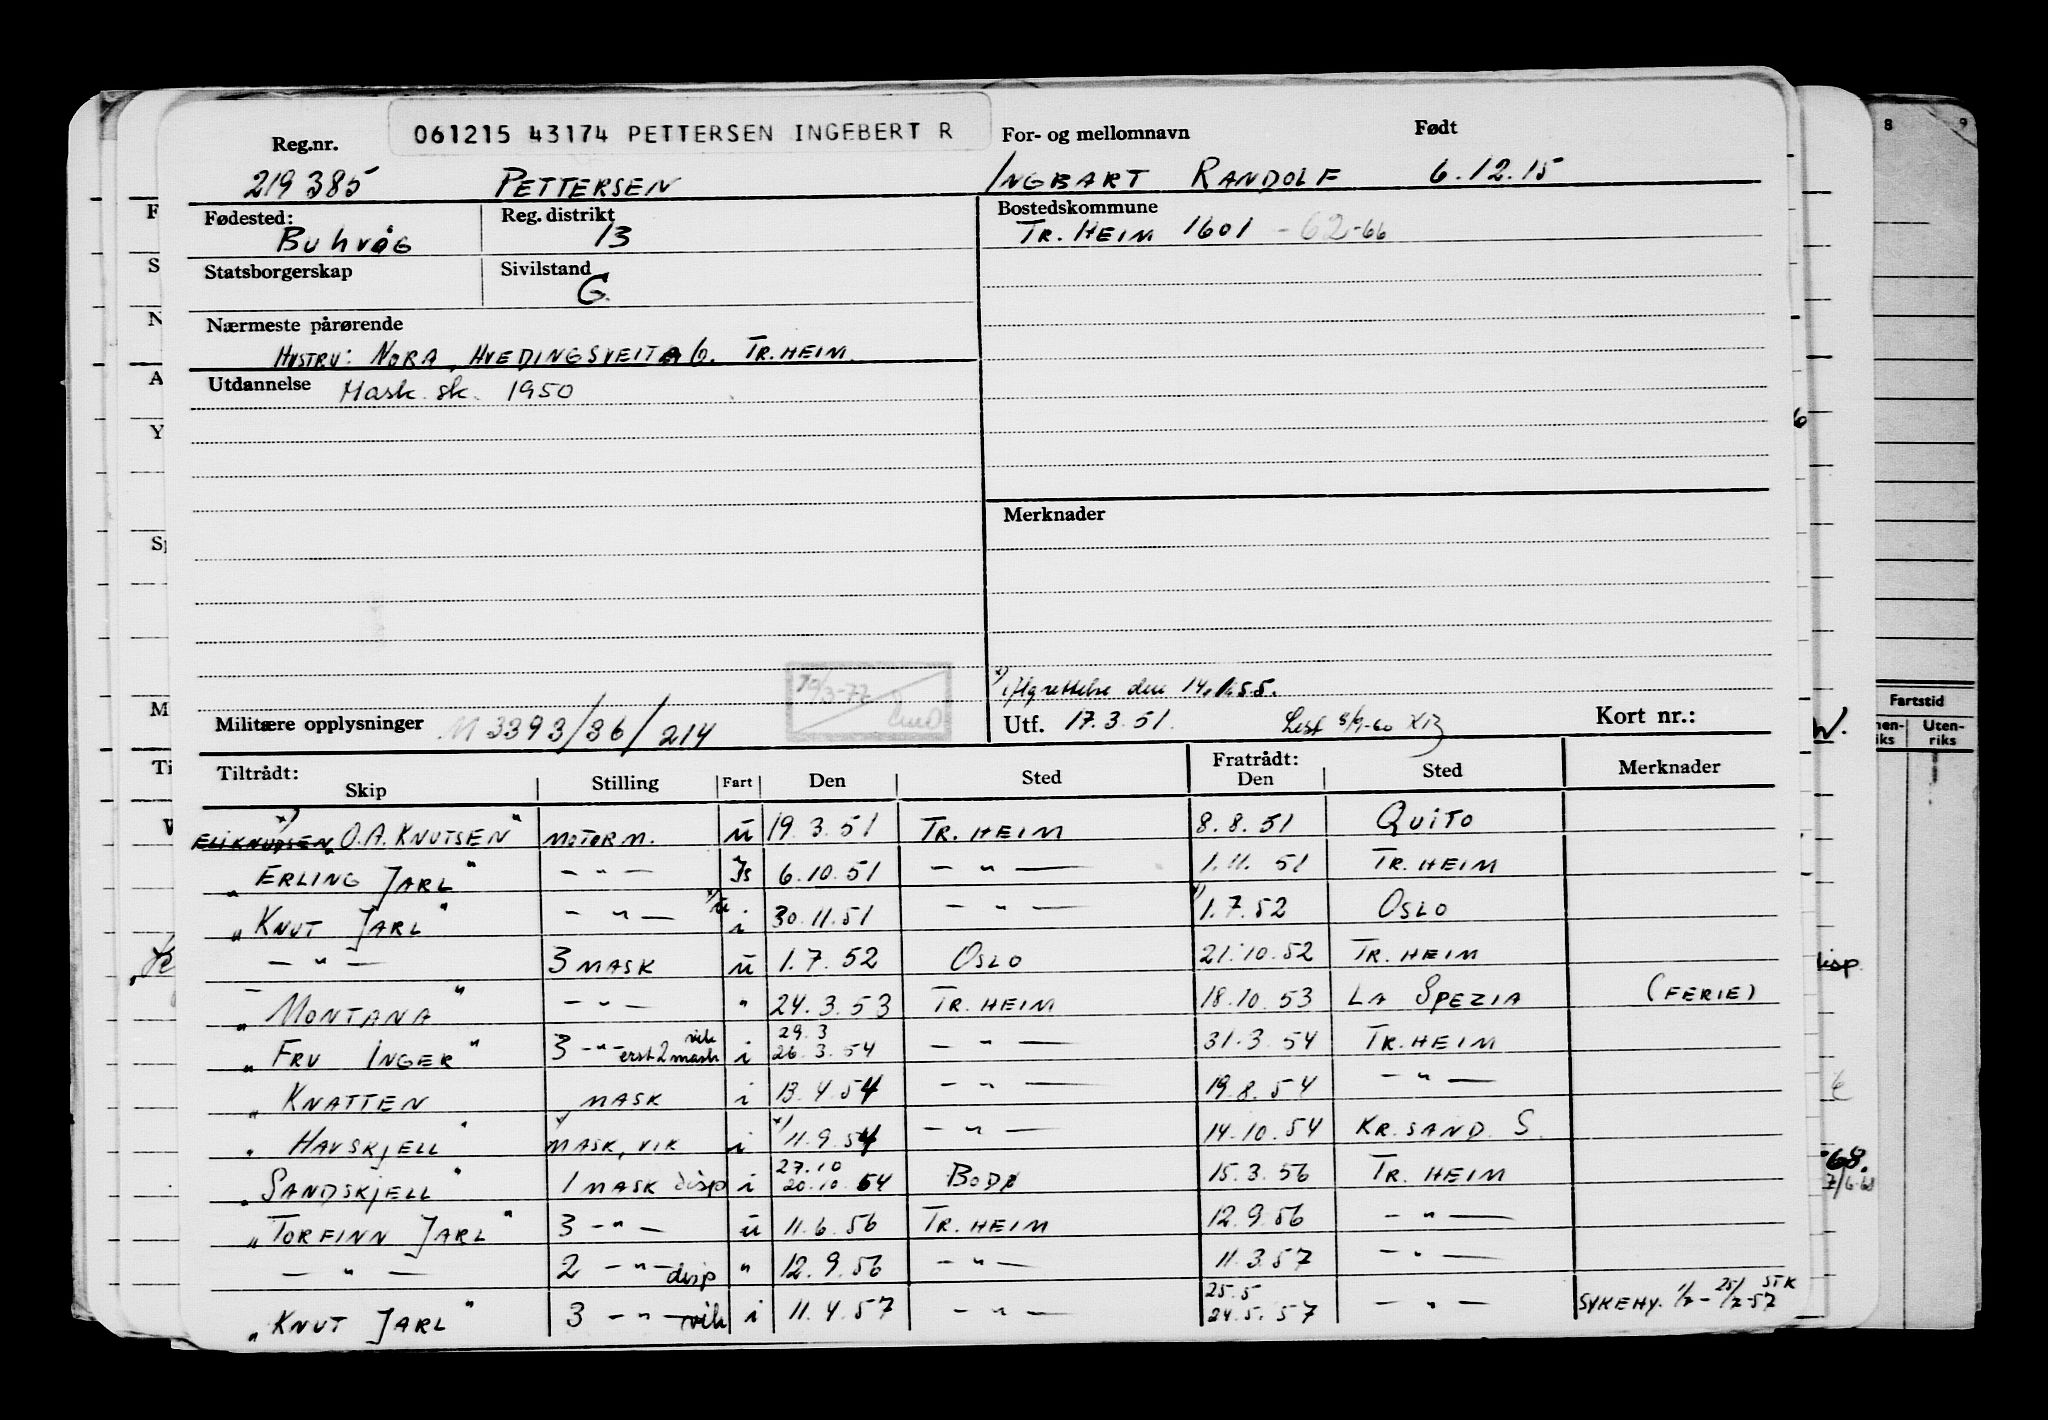 061215 43174 PETTERSEN INGEBERT R
Reg.nr. For- og mellomnavn Født
219385 PETTERSEN INGBART RANDOLF 6.12.15
Fødested: Reg. distrikt Bostedskommune
BUHVÅG 13 TR. HEIM 1601 -62-66
Statsborgerskap Sivilstand
G.
Nærmeste pårørende
HUSTRU: NORA, HVEDINGSVEITA 6. TR. HEIM.
Utdannelse Mask. sk. 1950
Merknader
x) iflg rettelse den
Militære opplysninger M 3393/36/214 Utf. 17.3.51. Lest 8/9-60 Kort nr.:
Tiltrådt: Fratrådt:
Skip Stilling Fart Den Sted Den Sted Merknader
x) O.A. KNUTSEN" MOTORM. u 19.3.51 TR. HEIM 8.8.51 QUITO
"ERLING JARL" — " — Is 6.10.51 — " — 1.11.51 TR. HEIM
"KNUT JARL" — " — x)u i 30.11.51 — " — x) 1.7.52 OSLO
— " — 3 MASK u 1.7.52 OSLO 21.10.52 TR. HEIM
"MONTANA" — " — " 24.3.53 TR. HEIM 18.10.53 LA SPEZIA (FERIE)
"FRU INGER" 3 — " — vik erst 2 mask i 29.3 26.3.54 — " — 31.3.54 TR. HEIM
"KNATTEN MASK i 13.4.54 — " — 19.8.54 — " —
"HAVSKJELL" MASK, VIK i x) 11.9.54 — " — 14.10.54 KR. SAND. S.
"SANDSKJELL" 1 MASK disp i 27.10 20.10.54 BODØ 15.3.56 TR. HEIM
"TORFINN JARL" 3 — " — u 11.6.56 TR. HEIM 12.9.56 — " —
— " — 2 — " — disp " 12.9.56 — " — 11.3.57 — " —
"KNUT JARL" 3 — " — vik i 11.4.57 — " — 25.5 24.5.57 — " — SYKEHY.
8 9
Fartstid
Uten-
riks